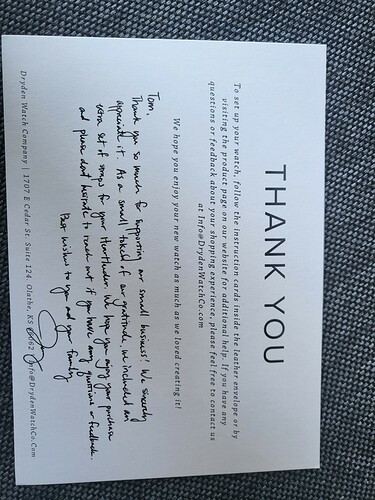 THANK YOU
To set up your watch, follow the instruction cards inside the leather envelope or by
visiting the product page on our website for additional help. If you have any
questions or feedback about your shopping experience, please feel free to contact us
at Info@DrydenWatchCo.com
We hope you enjoy your new watch as much as we loved creating it!
Tom,
Thank you so much for supporting our small business! We sincerely
appreciate it. As a small token of our gratitude, we included an
extra set of for your Heartlander. We hope you enjoy your purchase
and please don't hesitate to reach out if you have any questions or feedback.
Best wishes to you and your family
Dryden Watch Company | 1707 E Cedar St. Suite 124, Olathe, KS | Info@DrydenWatchCo.Com